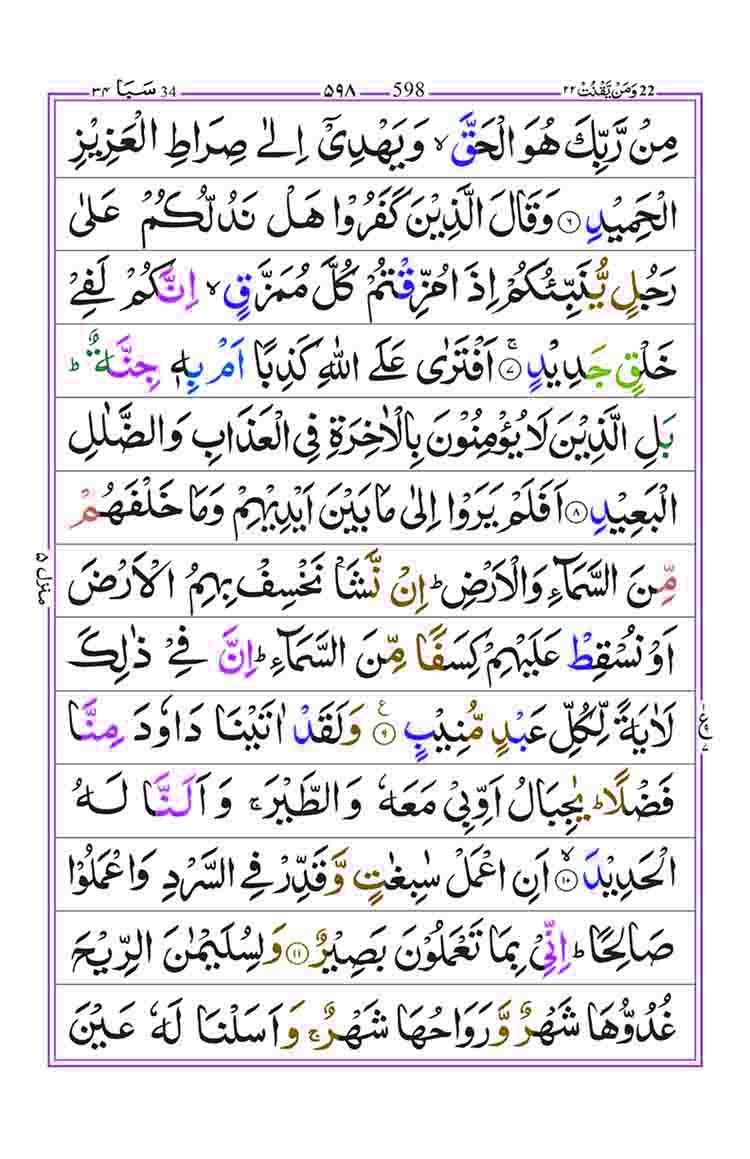 ٣٤ سَبَا 34 ٥٩٨ 598 ٢٢ وَمَنْ يَّقْنُتْ 22
مِنْ رَّبِّكَ هُوَ الْحَقَّ ۙ وَيَهْدِيْۤ اِلٰى صِرَاطِ الْعَزِيْزِ
الْحَمِيْدِ ۝٦ وَقَالَ الَّذِيْنَ كَفَرُوْا هَلْ نَدُلُّكُمْ عَلٰى
رَجُلٍ يُّنَبِّئُكُمْ اِذَا مُزِّقْتُمْ كُلَّ مُمَزَّقٍ ۙ اِنَّكُمْ لَفِيْ
خَلْقٍ جَدِيْدٍ ۝٧ۚ اَفْتَرٰى عَلَى اللّٰهِ كَذِبًا اَمْ بِهٖ جِنَّةٌ ؕ
بَلِ الَّذِيْنَ لَا يُؤْمِنُوْنَ بِالْاٰخِرَةِ فِى الْعَذَابِ وَالضَّلٰلِ
الْبَعِيْدِ ۝٨ اَفَلَمْ يَرَوْا اِلٰى مَا بَيْنَ اَيْدِيْهِمْ وَمَا خَلْفَهُمْ
مِّنَ السَّمَآءِ وَالْاَرْضِ ؕ اِنْ نَّشَاْ نَخْسِفْ بِهِمُ الْاَرْضَ
اَوْ نُسْقِطْ عَلَيْهِمْ كِسَفًا مِّنَ السَّمَآءِ ؕ اِنَّ فِيْ ذٰلِكَ
لَاٰيَةً لِّكُلِّ عَبْدٍ مُّنِيْبٍ ۝٩ۧ وَلَقَدْ اٰتَيْنَا دَاوٗدَ مِنَّا
فَضْلًا ؕ يٰجِبَالُ اَوِّبِيْ مَعَهٗ وَالطَّيْرَ ۚ وَاَلَنَّا لَهُ
الْحَدِيْدَ ۝١٠ۙ اَنِ اعْمَلْ سٰبِغٰتٍ وَّقَدِّرْ فِى السَّرْدِ وَاعْمَلُوْا
صَالِحًا ؕ اِنِّيْ بِمَا تَعْمَلُوْنَ بَصِيْرٌ ۝١١ وَلِسُلَيْمٰنَ الرِّيْحَ
غُدُوُّهَا شَهْرٌ وَّرَوَاحُهَا شَهْرٌ ۚ وَاَسَلْنَا لَهٗ عَيْنَ
منزل ٥